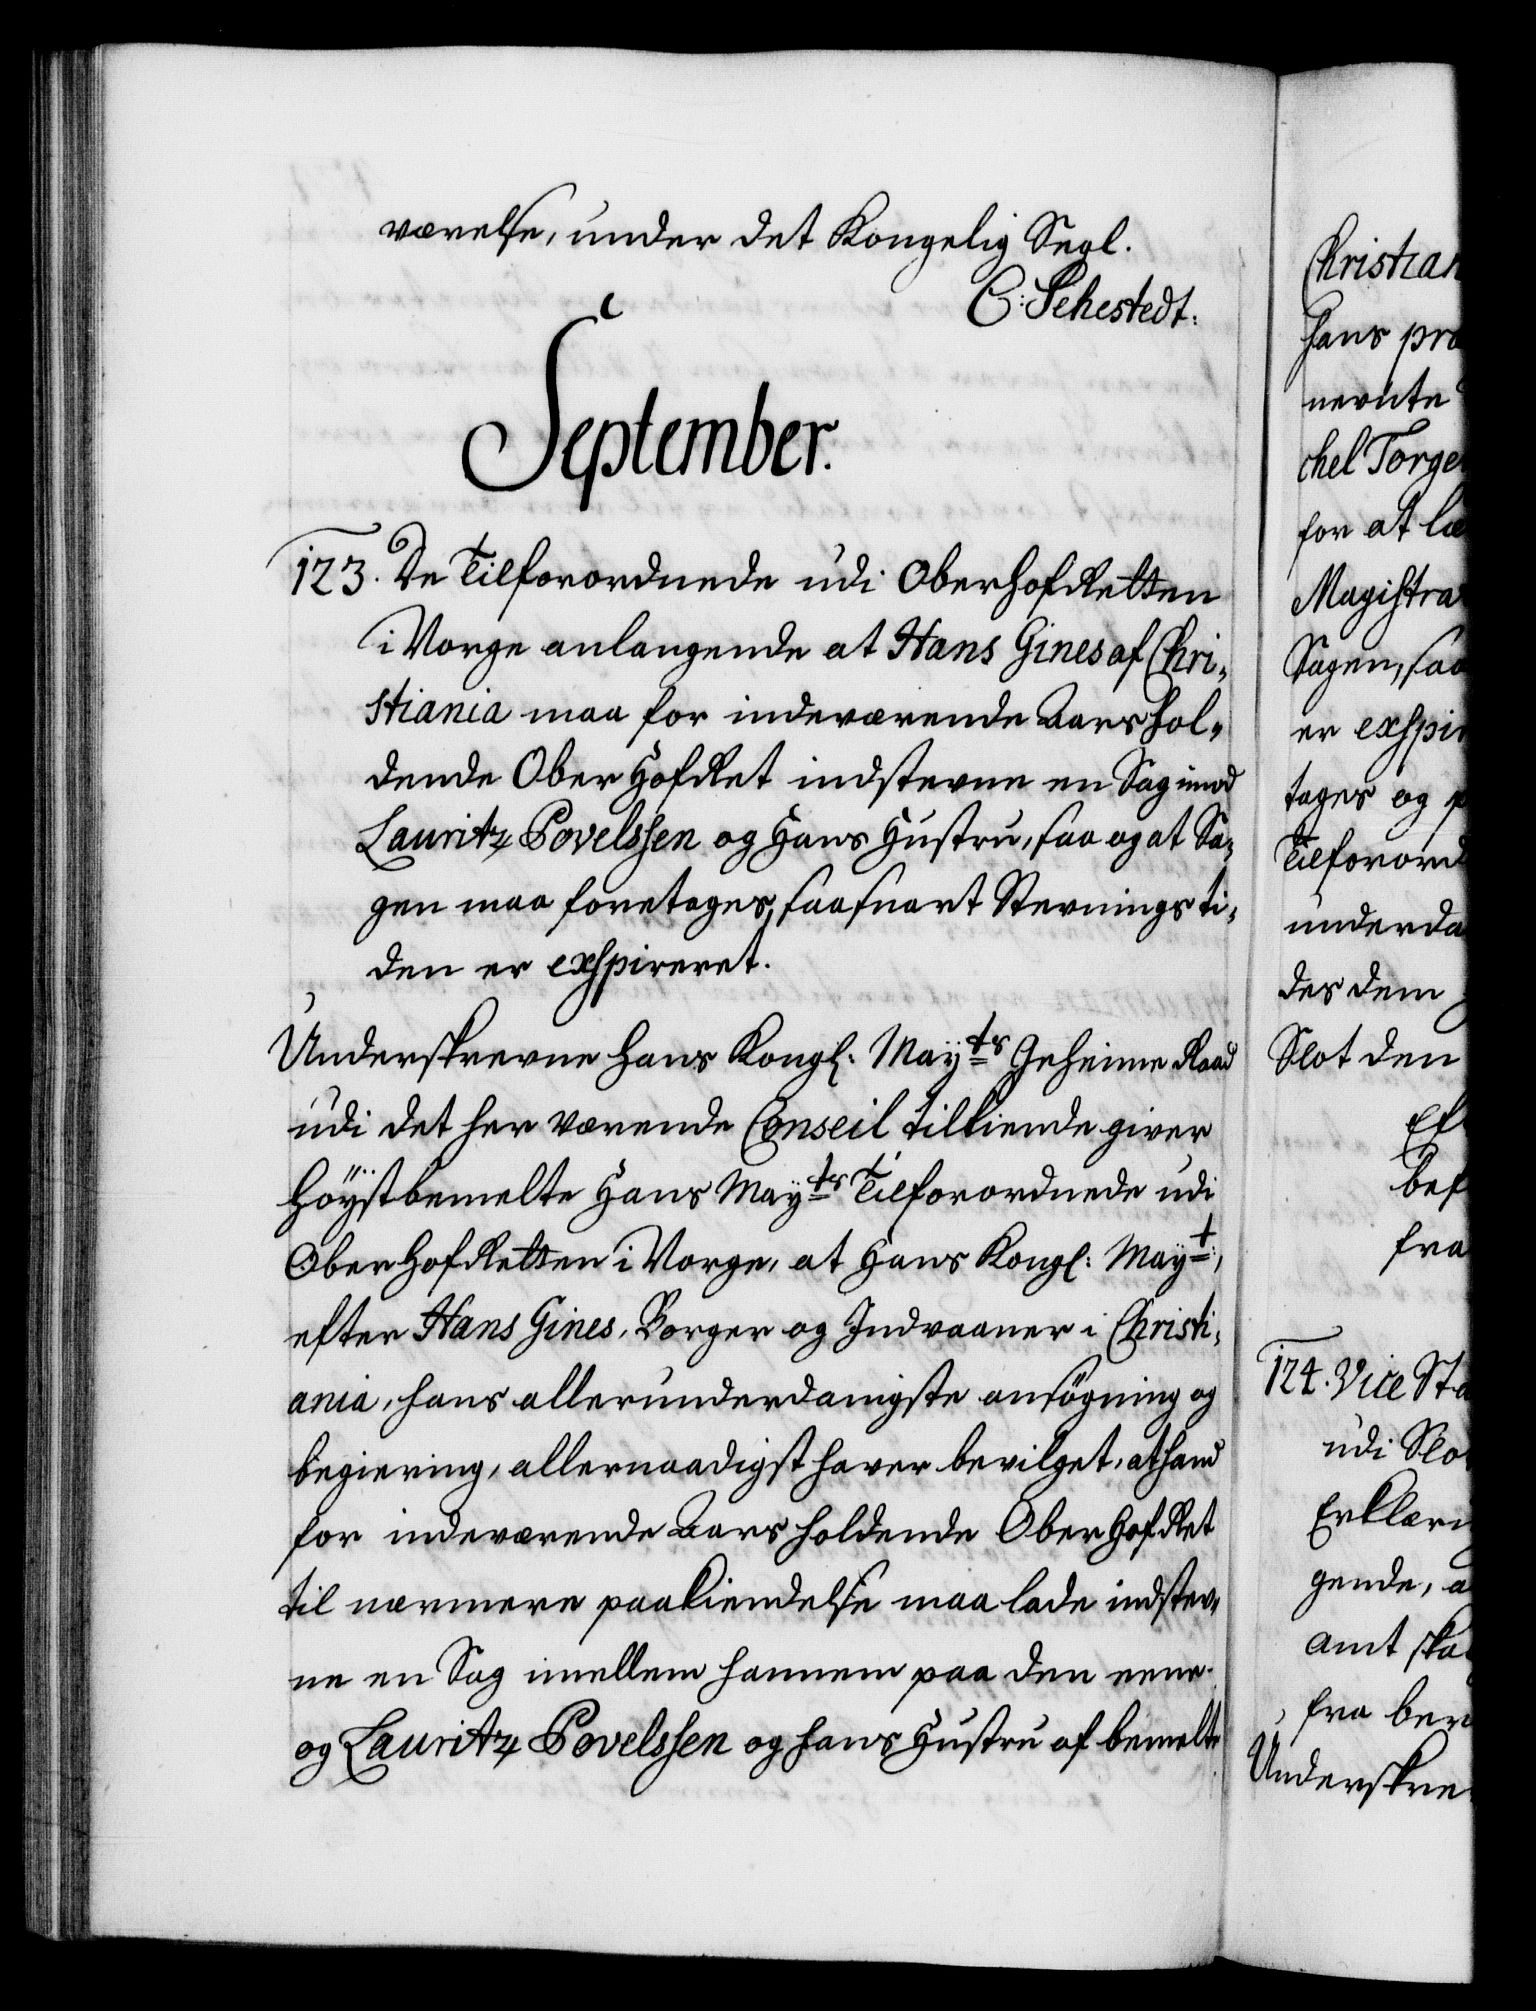 værelse, under det Kongelig Segl.
C: Sehestedt:
September.
123. De Tilforordnede udi OberhofRetten
i Norge anlangende at Hans Gines af Chri„
stiania maa for indeværende Aars hol„
dende Ober HofRet indstevne en Sag imod
Lauritz Povelssen og Hans Hustru, saa og at Sa„
gen maa foretages, saasnart Stevnings ti„
den er exspireret.
Underskrevne hans Kongl. Mayts Geheime Raad
udi det her værende Conseil tilkiende giver
Höystbemelte Hans Mayts Tilforordnede udi
OberHofRetten i Norge, at Hans Kongl: Mayt,
efter Hans Gines, Borger og Indvaaner i Christi„
ania, hans allerunderdanigste ansögning og
begiering, allernaadigst haver bevilget, at hand
for indeværende Aars holdende OberHofRet
til nærmere paakiendelse maa lade indstev„
ne en Sag imellem hannem paa den eene
og Lauritz Povelssen og hans Hustru af bemelte
Christian
hans pro
nevnte
chel Torge
for at læ
Magistra
Sagen, saa
er exspir
tages og p
Tilforord
underda
des dem
Slot den
Ef
bef
fra
124. Vice Sta
udi Slo
Erklæri
gende, a
Amt ska
fra ber
Underskre